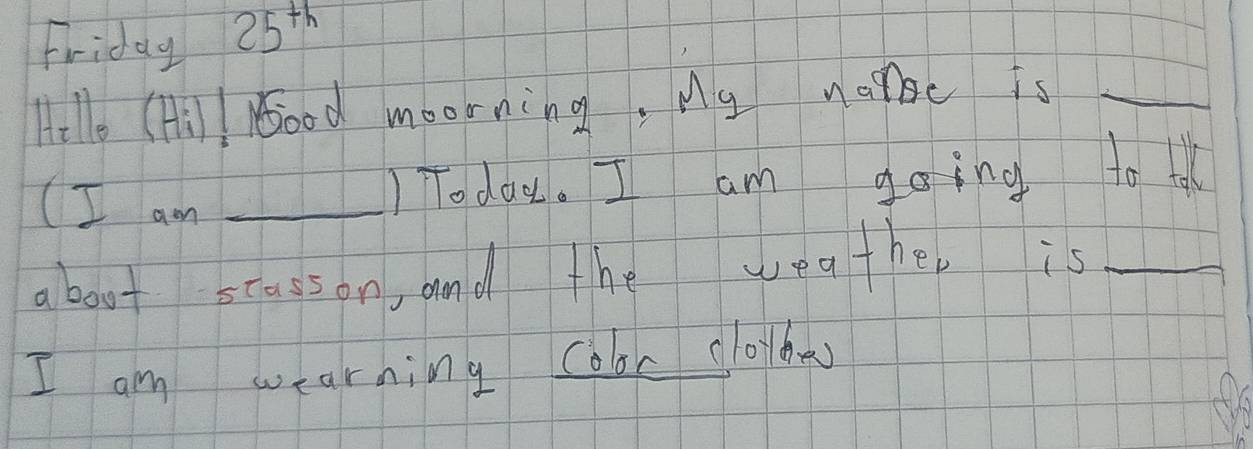 Friday 25th
Hello (Hi)! Good moorning, My name is ____
(I am ____) Today. I am going to talk
about seasson, and the weather is ____
I am wearning color clothes